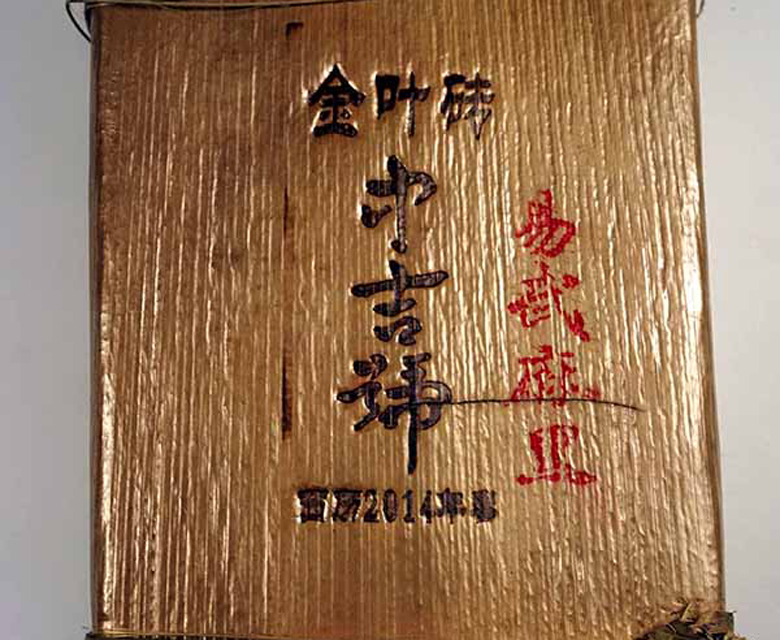 金叶砖
中吉號
易武麻黑
西历2014年春